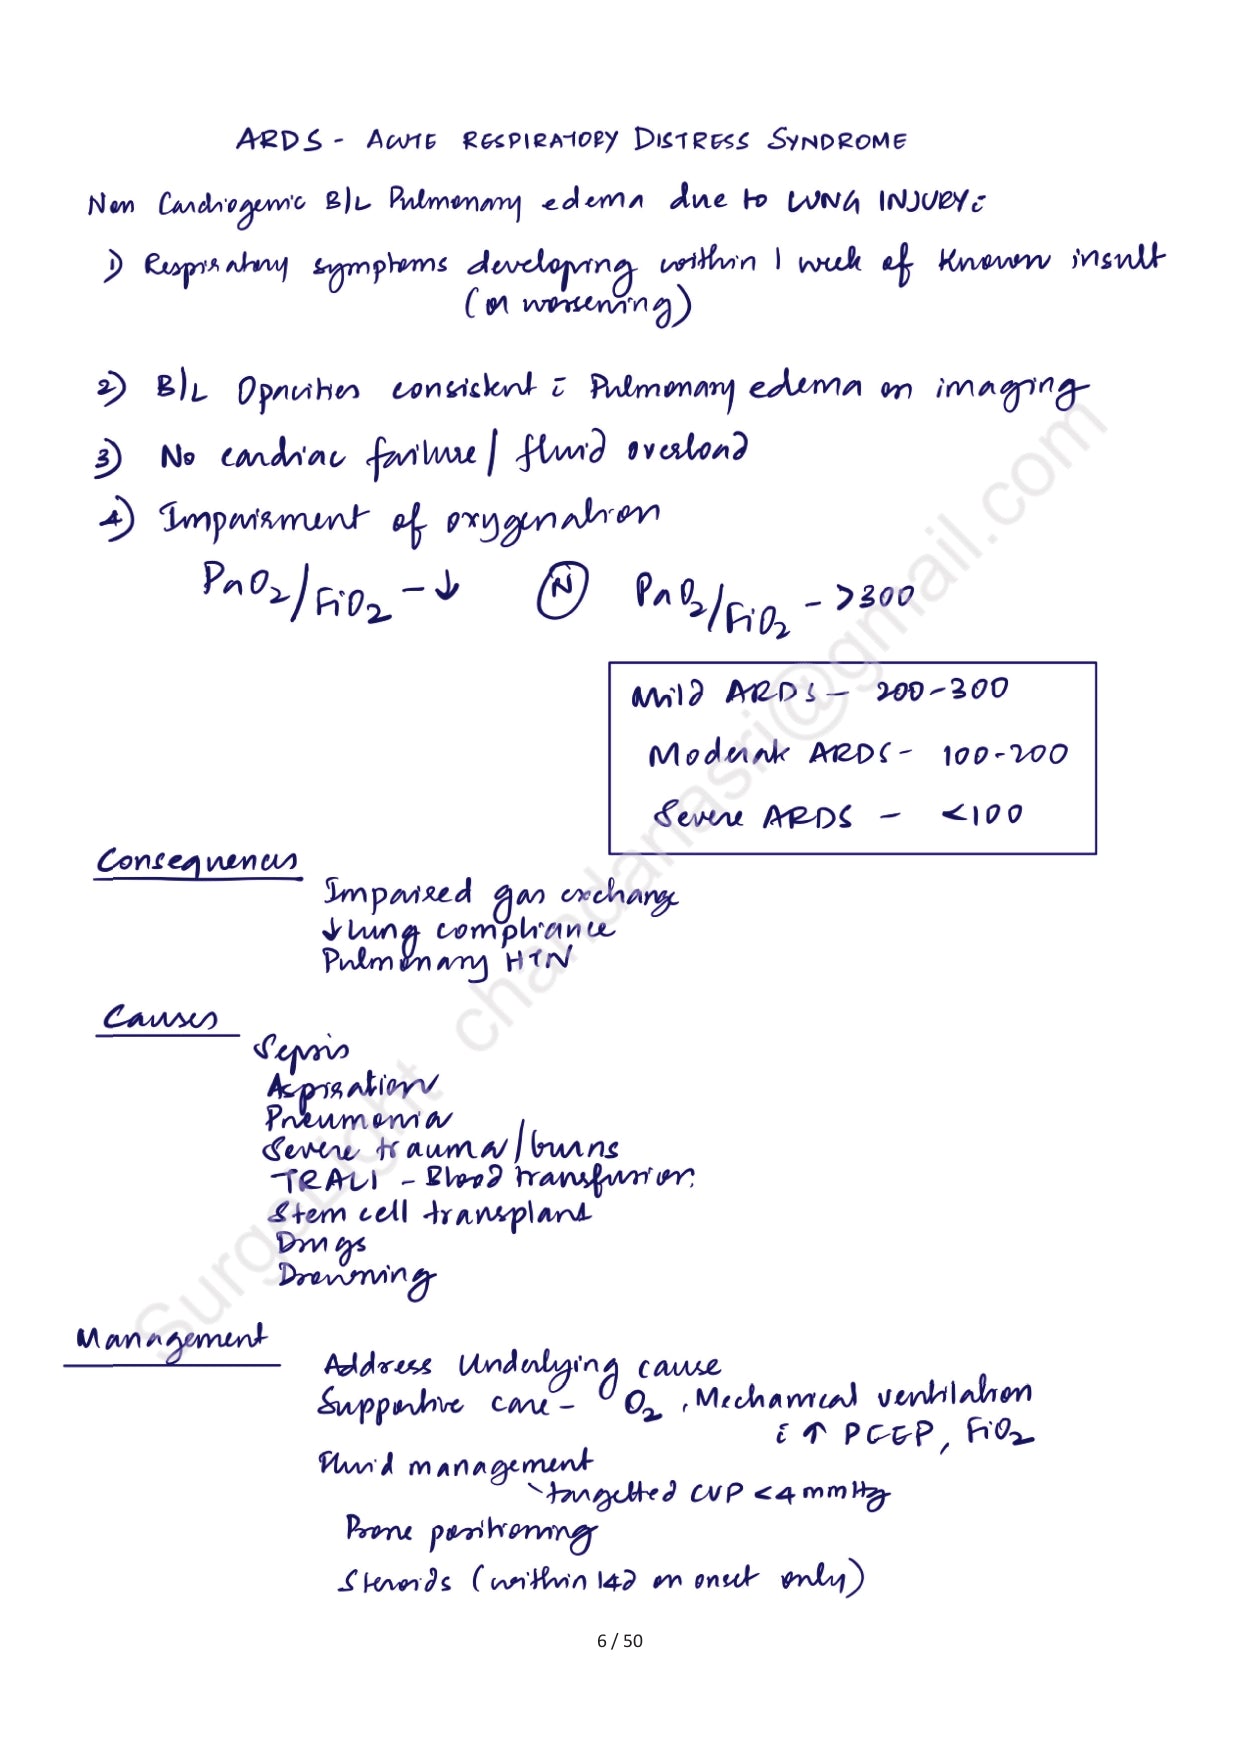 ARDS - ACUTE RESPIRATORY DISTRESS SYNDROME
Non Cardiogenic B/L Pulmonary edema due to LUNG INJURY:
1) Respiratory symptoms developing within 1 week of known insult
(or worsening)
2) B/L Opacities consistent c̄ Pulmonary edema on imaging
3) No cardiac failure / fluid overload
4) Impairment of oxygenation
PaO2/FiO2 - ↓ (N) PaO2/FiO2 - >300
Mild ARDS - 200-300
Moderate ARDS - 100-200
Severe ARDS - <100
Consequences
Impaired gas exchange
↓ lung compliance
Pulmonary HTN
Causes
Sepsis
Aspiration
Pneumonia
Severe trauma/burns
TRALI - Blood transfusion
Stem cell transplant
Drugs
Drowning
Management
Address Underlying cause
Supportive care - O2, Mechanical ventilation
c̄ ↑ PEEP, FiO2
Fluid management
targetted CVP <4 mmHg
Prone positioning
Steroids (within 14d on onset only)
SurgeLight chandanasri@gmail.com
6 / 50